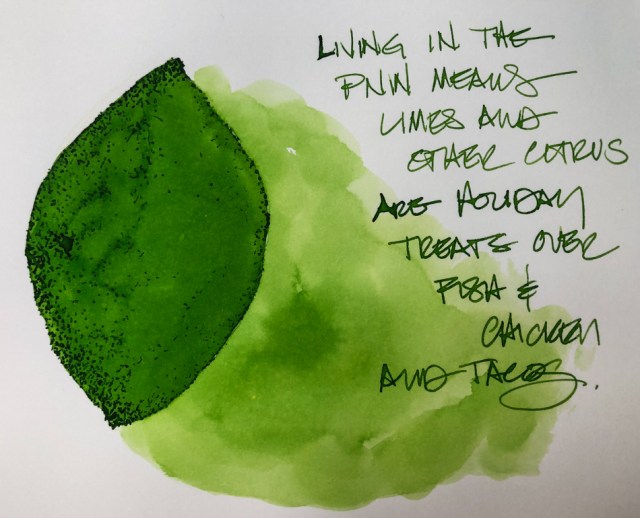 LIVING IN THE
PNW MEANS
LIMES AND
OTHER CITRUS
ARE HOLIDAY
TREATS OVER
FISH &
CHICKEN
AND TACOS.